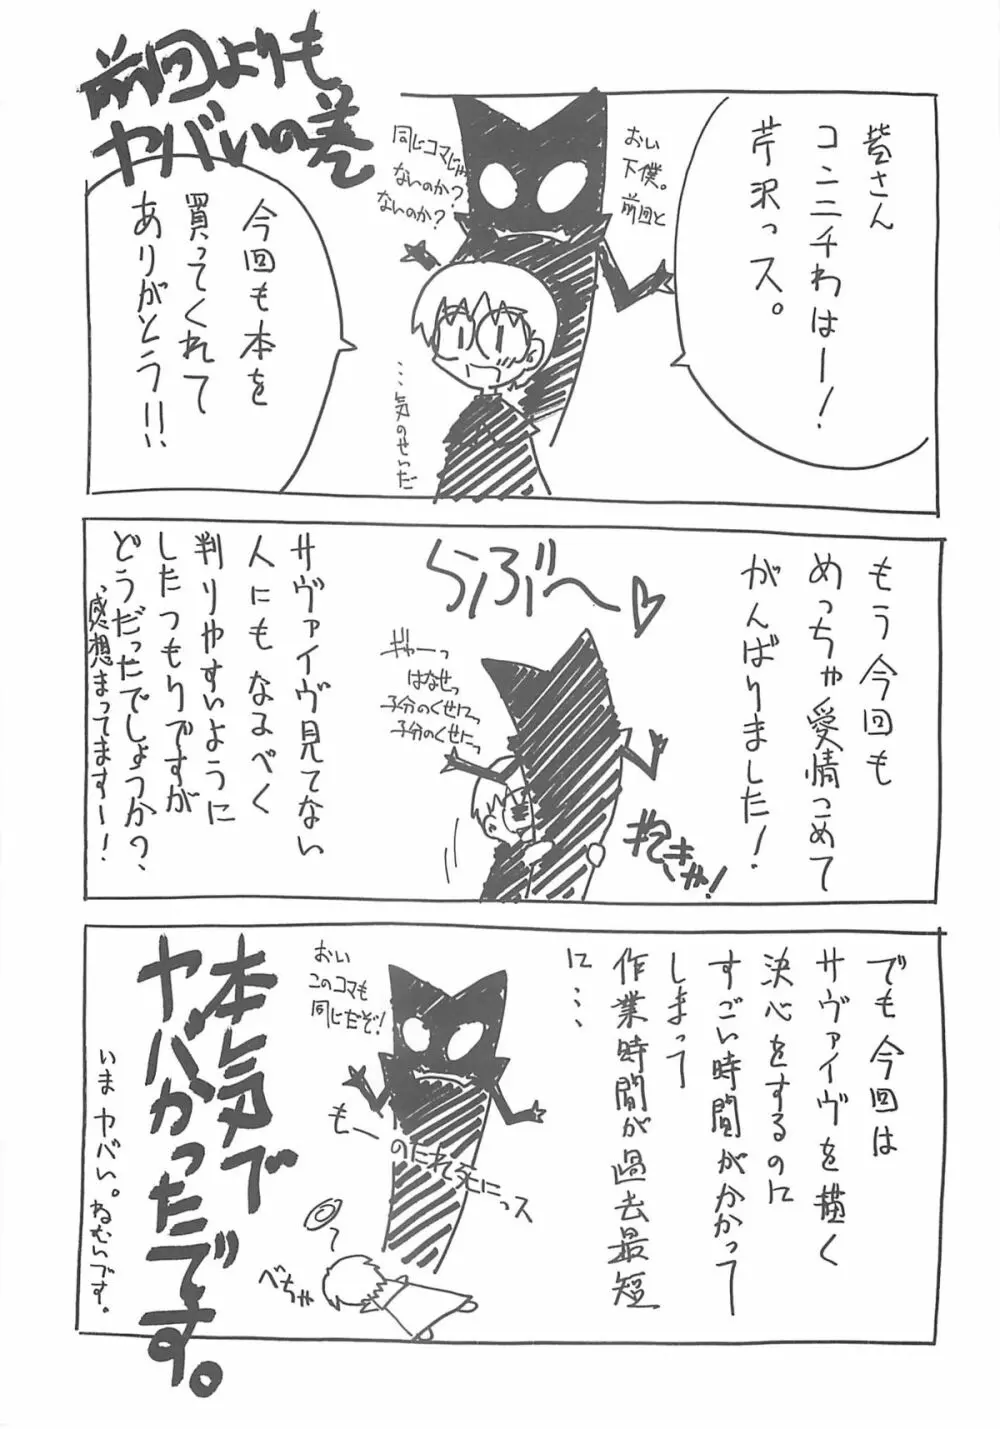 前回よりも
ヤバいの巻
皆さん
コンニチわはー!
芹沢っス。
おい
下僕。
前回と
同じコマじゃ
ないのか?
ないのか?
…気のせいだ
今回も本を
買ってくれて
ありがとう!!
もう今回も
めっちゃ愛情こめて
がんばりました!
らぶ〜♡
ギャーっ
はなせっ
子分のくせにっ
子分のくせにっ
サヴァイヴ見てない
人にもなるべく
判りやすいように
したつもりですが
どうだったでしょうか?、
感想まってますー!
でも今回は
サヴァイヴを描く
決心をするのに
すごい時間がかかって
しまって
作業時間が過去最短
に…
おい
このコマも
同じだぞ!
もー
のたれ死にっス
べちゃ
本気で
ヤバかったです。
いまヤバい。ねむいです。